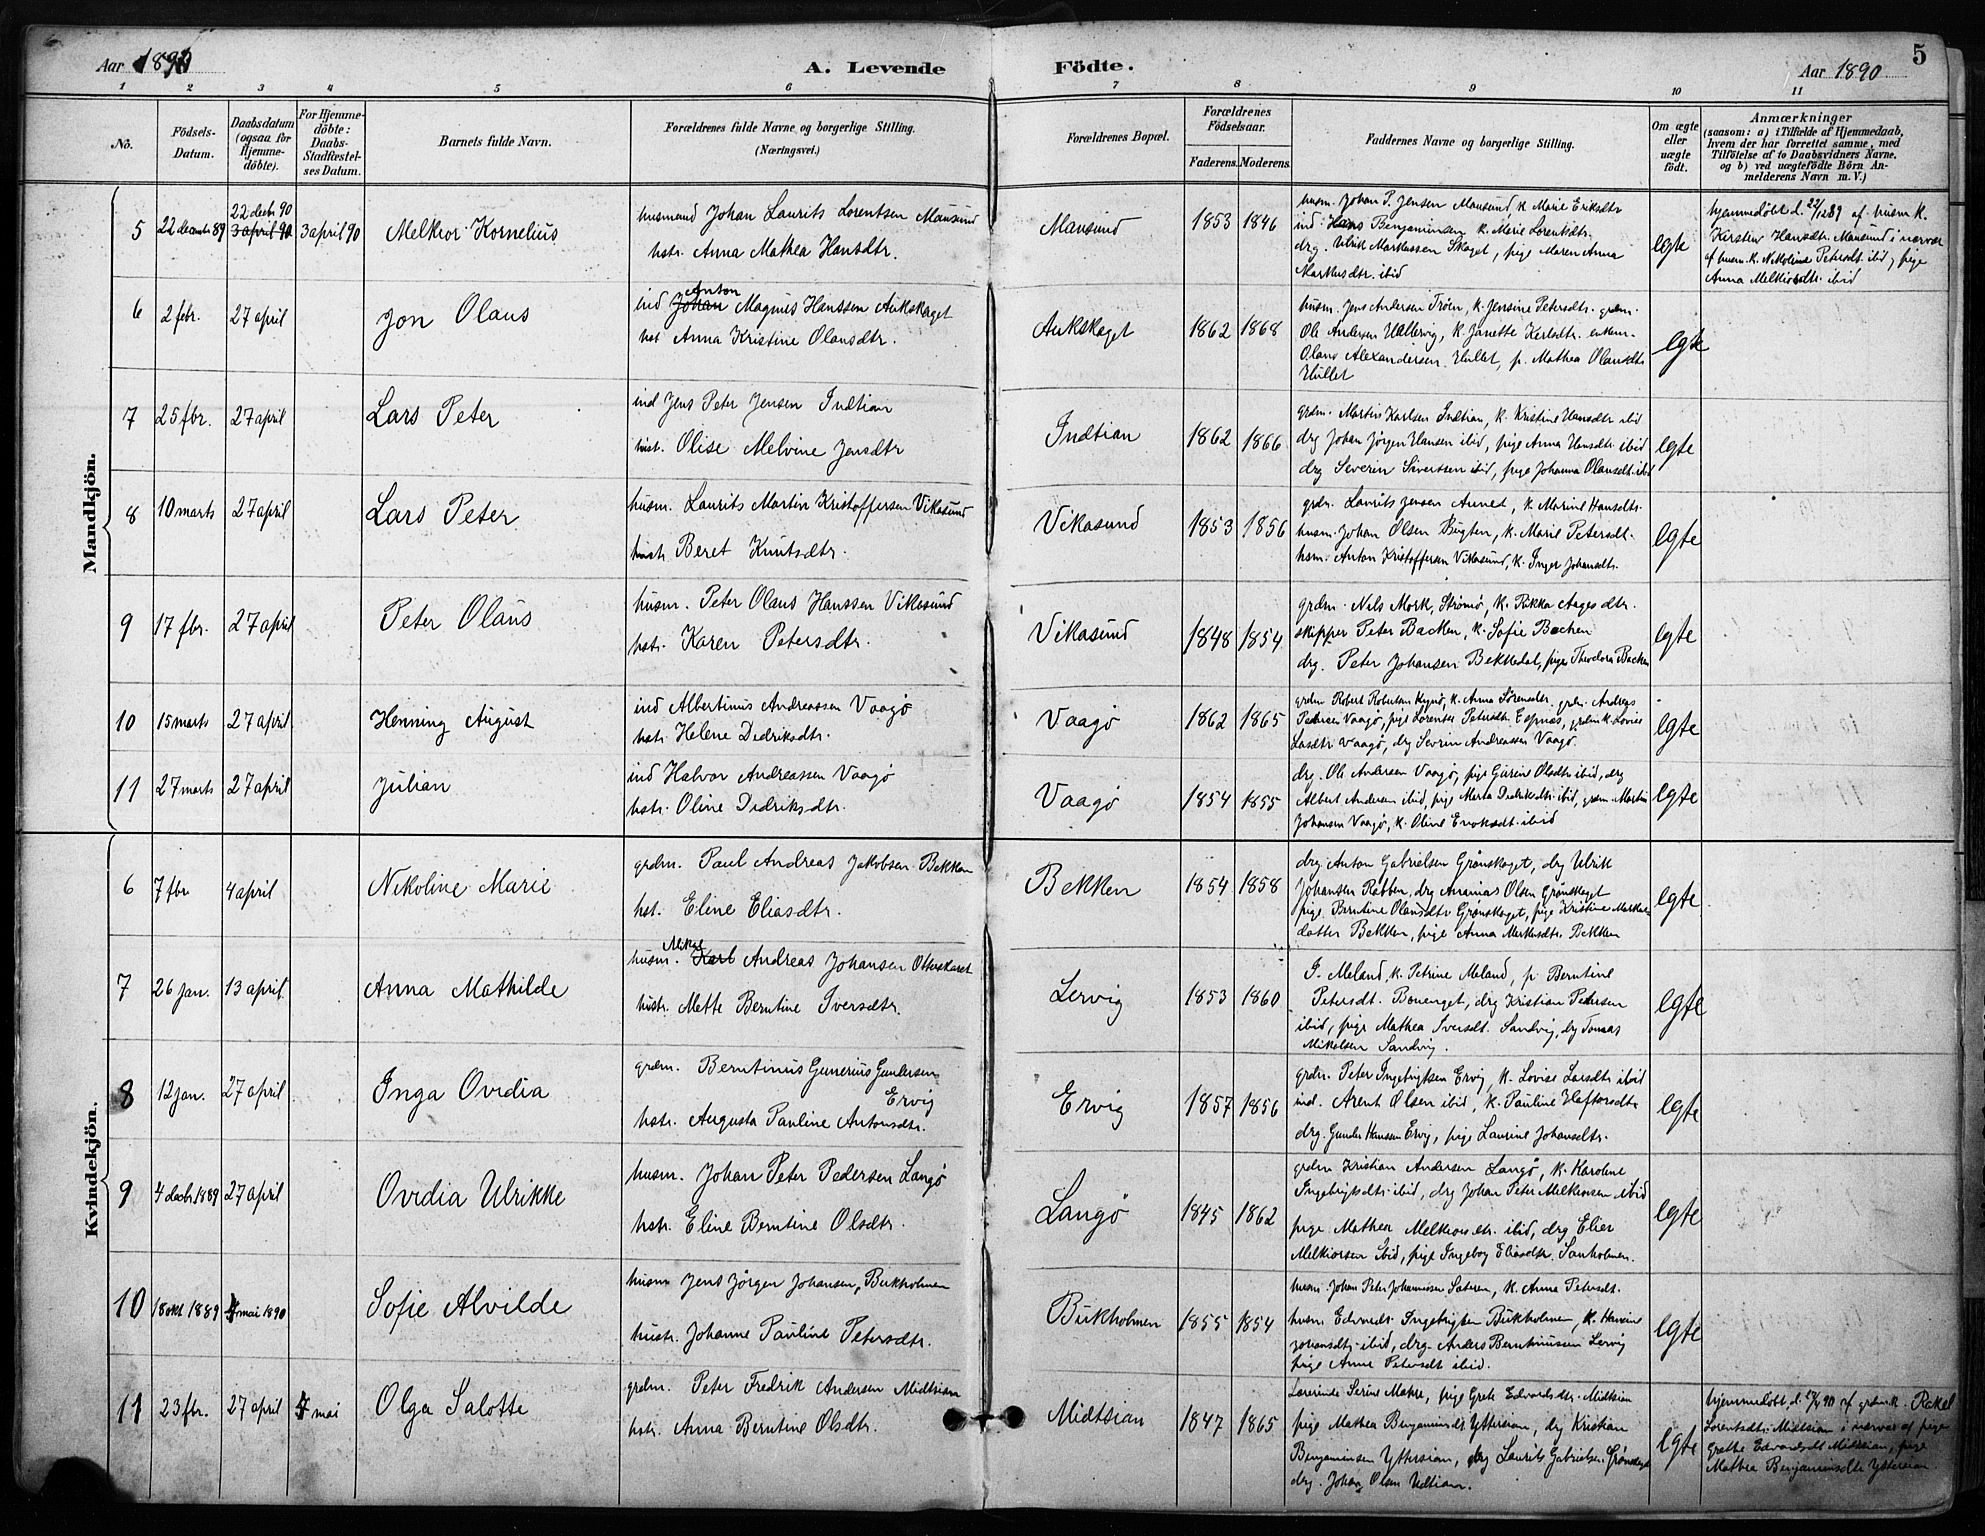 Aar 1890
A. Levende Födte.
Aar 1890
5
1 2 3 4 5 6 7 8 9 10 11
No.
Födsels-Datum.
Daabsdatum (ogsaa for Hjemme-döbte).
For Hjemme-döbte: Daabs-Stadfæstel-ses Datum.
Barnets fulde Navn.
Forældrenes fulde Navne og borgerlige Stilling.
(Næringsvei.)
Forældrenes Bopæl.
Forældrenes Födselsaar.
Faderens. Moderens.
Faddernes Navne og borgerlige Stilling.
Om ægte eller uægte födt.
Anmærkninger
(saasom: a) i Tilfælde af Hjemmedaab,
hvem der har forrettet samme, med
Tilföielse af to Daabsvidners Navne.
og b) ved uægtefödte Börn An-
melderens Navn m. V.)
Mandkjön.
5 22 decmb 89 22 decbr 90 3 april 90 3 april 90 Melkior Kornelius
husmand Johan Laurits Lorentsen Mausund
hstr. Anna Mathea Hansdtr.
Mausund 1853 1846
husm. Johan P. Jensen Mausund, k. Marie Eriksdtr
ind Hans Benjaminsen k. Marie Lorentsdtr.
drg. Ulrik Markussen Skaget, pige Maren Anna
Markusdtr. ibid
egte
hjemmedøbt d. 22/12 89 af husm. k.
Kirsten Hansdtr. Mausund i nærvær
af husm. k. Nikoline Petersdt. ibid, pige
Anna Melkiorsdtr. ibid
6 2 febr. 27 april Jon Olaus
ind Johan Anton Magnus Hanssen Aukskaget
hst Anna Kristine Olausdtr.
Aukskaget 1862 1868
husm. Jens Andersen Trøen, k. Jensine Petersdtr. grdm.
Ole Andersen Ulvervig, k. Janette Kerlsdtr. enkem.
Olaus Alexandersen Hullet, p. Mathea Olausdtr
Hullet
egte
7 25 fbr. 27 april Lars Peter
ind Jens Peter Jensen Indtian
hust. Olise Melvine Jensdtr
Indtian 1862 1866
grdm. Martin Karlsen Indtian, k. Kristine Hansdtr ibid
drg Johan Jørgen Hansen ibid, pige Anna Hansdtr. ibid
drg Severin Sivertsen ibid, pige Johanna Olausdtr. ibid
egte
8 10 marts 27 april Lars Peter
husm. Laurits Martin Kristoffersen Vikasund
hustr. Beret Knutsdtr.
Vikasund 1853 1856
grdm. Laurits Jensen Arnet, k. Marine Hansdtr.
husm. Johan Olsen Bugten, k. Marie Petersdt.
hsm. Anton Kristoffersen Vikasund, k. Inger Johansdtr.
egte
9 17 fbr. 27 april Peter Olaus
husm. Peter Olaus Hanssen Vikasund
hstr. Karen Petersdtr.
Vikasund 1848 1854
grdm. Nils Mork, Strømø, k. Rikka Aagesdtr.
skipper Peter Backen, k. Sofie Backen
drg. Peter Johansen Bekkedal, pige Theodora Backen
egte
10 15 marts 27 april Henning August
ind Albertinus Andreassen Vaagø
hstr. Helene Didriksdtr.
Vaagø 1862 1865
grdm Robert Robertsen, k. Anna Sörensdtr. grdm. Andreas
Petersen Vaagø, pige Lorentse Petersdtr. Espnæs, grdm k. Lovise
Larsdtr Vaagø, drg Sevrin Andreassen Vaagø.
egte
11 27 marts 27 april Julian
ind Halvor Andreassen Vaagø
hstr. Oline Didriksdtr.
Vaagø 1854 1855
drg. Ole Andersen Vaagø, pige Gurine Olsdtr ibid, drg
Albert Andersen ibid, pige Marta Didriksdtr. ibid, grdm Martin
Johansen Vaagø, k. Oline Enoksdt. ibid
egte
Kvindekjön.
6 7 fbr 4 april Nikoline Marie
grdm. Paul Andreas Jakobsen Bekken
hst. Eline Eliasdtr.
Bekken 1854 1858
drg Anton Gabrielsen Grønskaget, drg Ulrik
Johansen Rabben, drg Ananias Olsen Grønskaget
pige Berntine Olausdtr Grønskaget, pige Kristine Markus-
datter Bekken, pige Anna Markusdtr. Bekken
egte
7 26 jan. 13 april. Anna Mathilde
husm. Karl Mikal Andreas Johansen Otterskaret
hustr. Mette Berntine Iversdtr.
Lervig 1853 1860
I. Meland, k. Petrine Meland, p. Berntine
Petersdt. Bonenget, drg Kristian Petersen
ibid, pige Mathea Iversdt. Sandvig, drg Tomas
Mikalsen Sandvig.
egte
8 12 jan. 27 april Inga Ovidia
grdm. Berntinus Gunerius Gundersen
Ervig
hstr. Augusta Pauline Antonsdtr.
Ervig 1857 1856
grdm. Peter Ingebrigtsen Ervig, k. Lovise Larsdtr ibid
ind. Arent Olsen ibid, k. Pauline Haftorsdtr
drg. Gunder Hanssen Ervig, pige Laurine Johansdtr.
egte
9 4 decbr. 1889 27 april Ovidia Ulrikke
husm. Johan Peter Pedersen Langø
hstr. Eline Berntine Olsdtr.
Langø 1845 1862
grdm Kristian Andersen Langø, k. Karoline
Ingebrigtsdtr. ibid, drg Johan Peter Melkiorsen ibid
pige Mathea Melkiorsdtr. ibid, drg Elier
Melkiorsen Ibid, pige Ingeborg Eliasdtr. Sanholmen.
egte
10 18 okt 1889 4 mai 1890 Sofie Alvilde
husm Jens Jörgen Johansen, Bukholmen
hustr. Johanne Pauline Petersdtr.
Bukholmen 1855 1854
husm. Johan Peter Johannessen Sæteren, k. Anna Petersdt.
husm Edvard Ingebrigtsen Bukholmen, k. Havine
Johansdtr. ibid, drg. Anders Berntinussen Lervig
pige Anne Petersdt ibid.
egte
11 23 fbr. 27 april 4 mai Olga Salotte
grdm. Peter Fredrik Andersen Midtsian
hstr. Anna Berntine Olsdtr.
Midtsian 1847 1865
Lærerinde Serine Moxe, pige Grete Edvardsdtr. Midtsian
pige Mathea Benjaminsdt Yttersian, drg Kristian
Benjaminsen Yttersian, drg Laurits Gabrielsen Grønskaget
drg. Johan Olsen Udtian.
egte
hjemmedøbt, d. 27/4 90 af grdm k. Rakel
Lorentsdtr. Midtsian i nærvær af pige
Grethe Edvardsdt Midtsian, pige
Mathea Benjaminsdtr Yttersian.